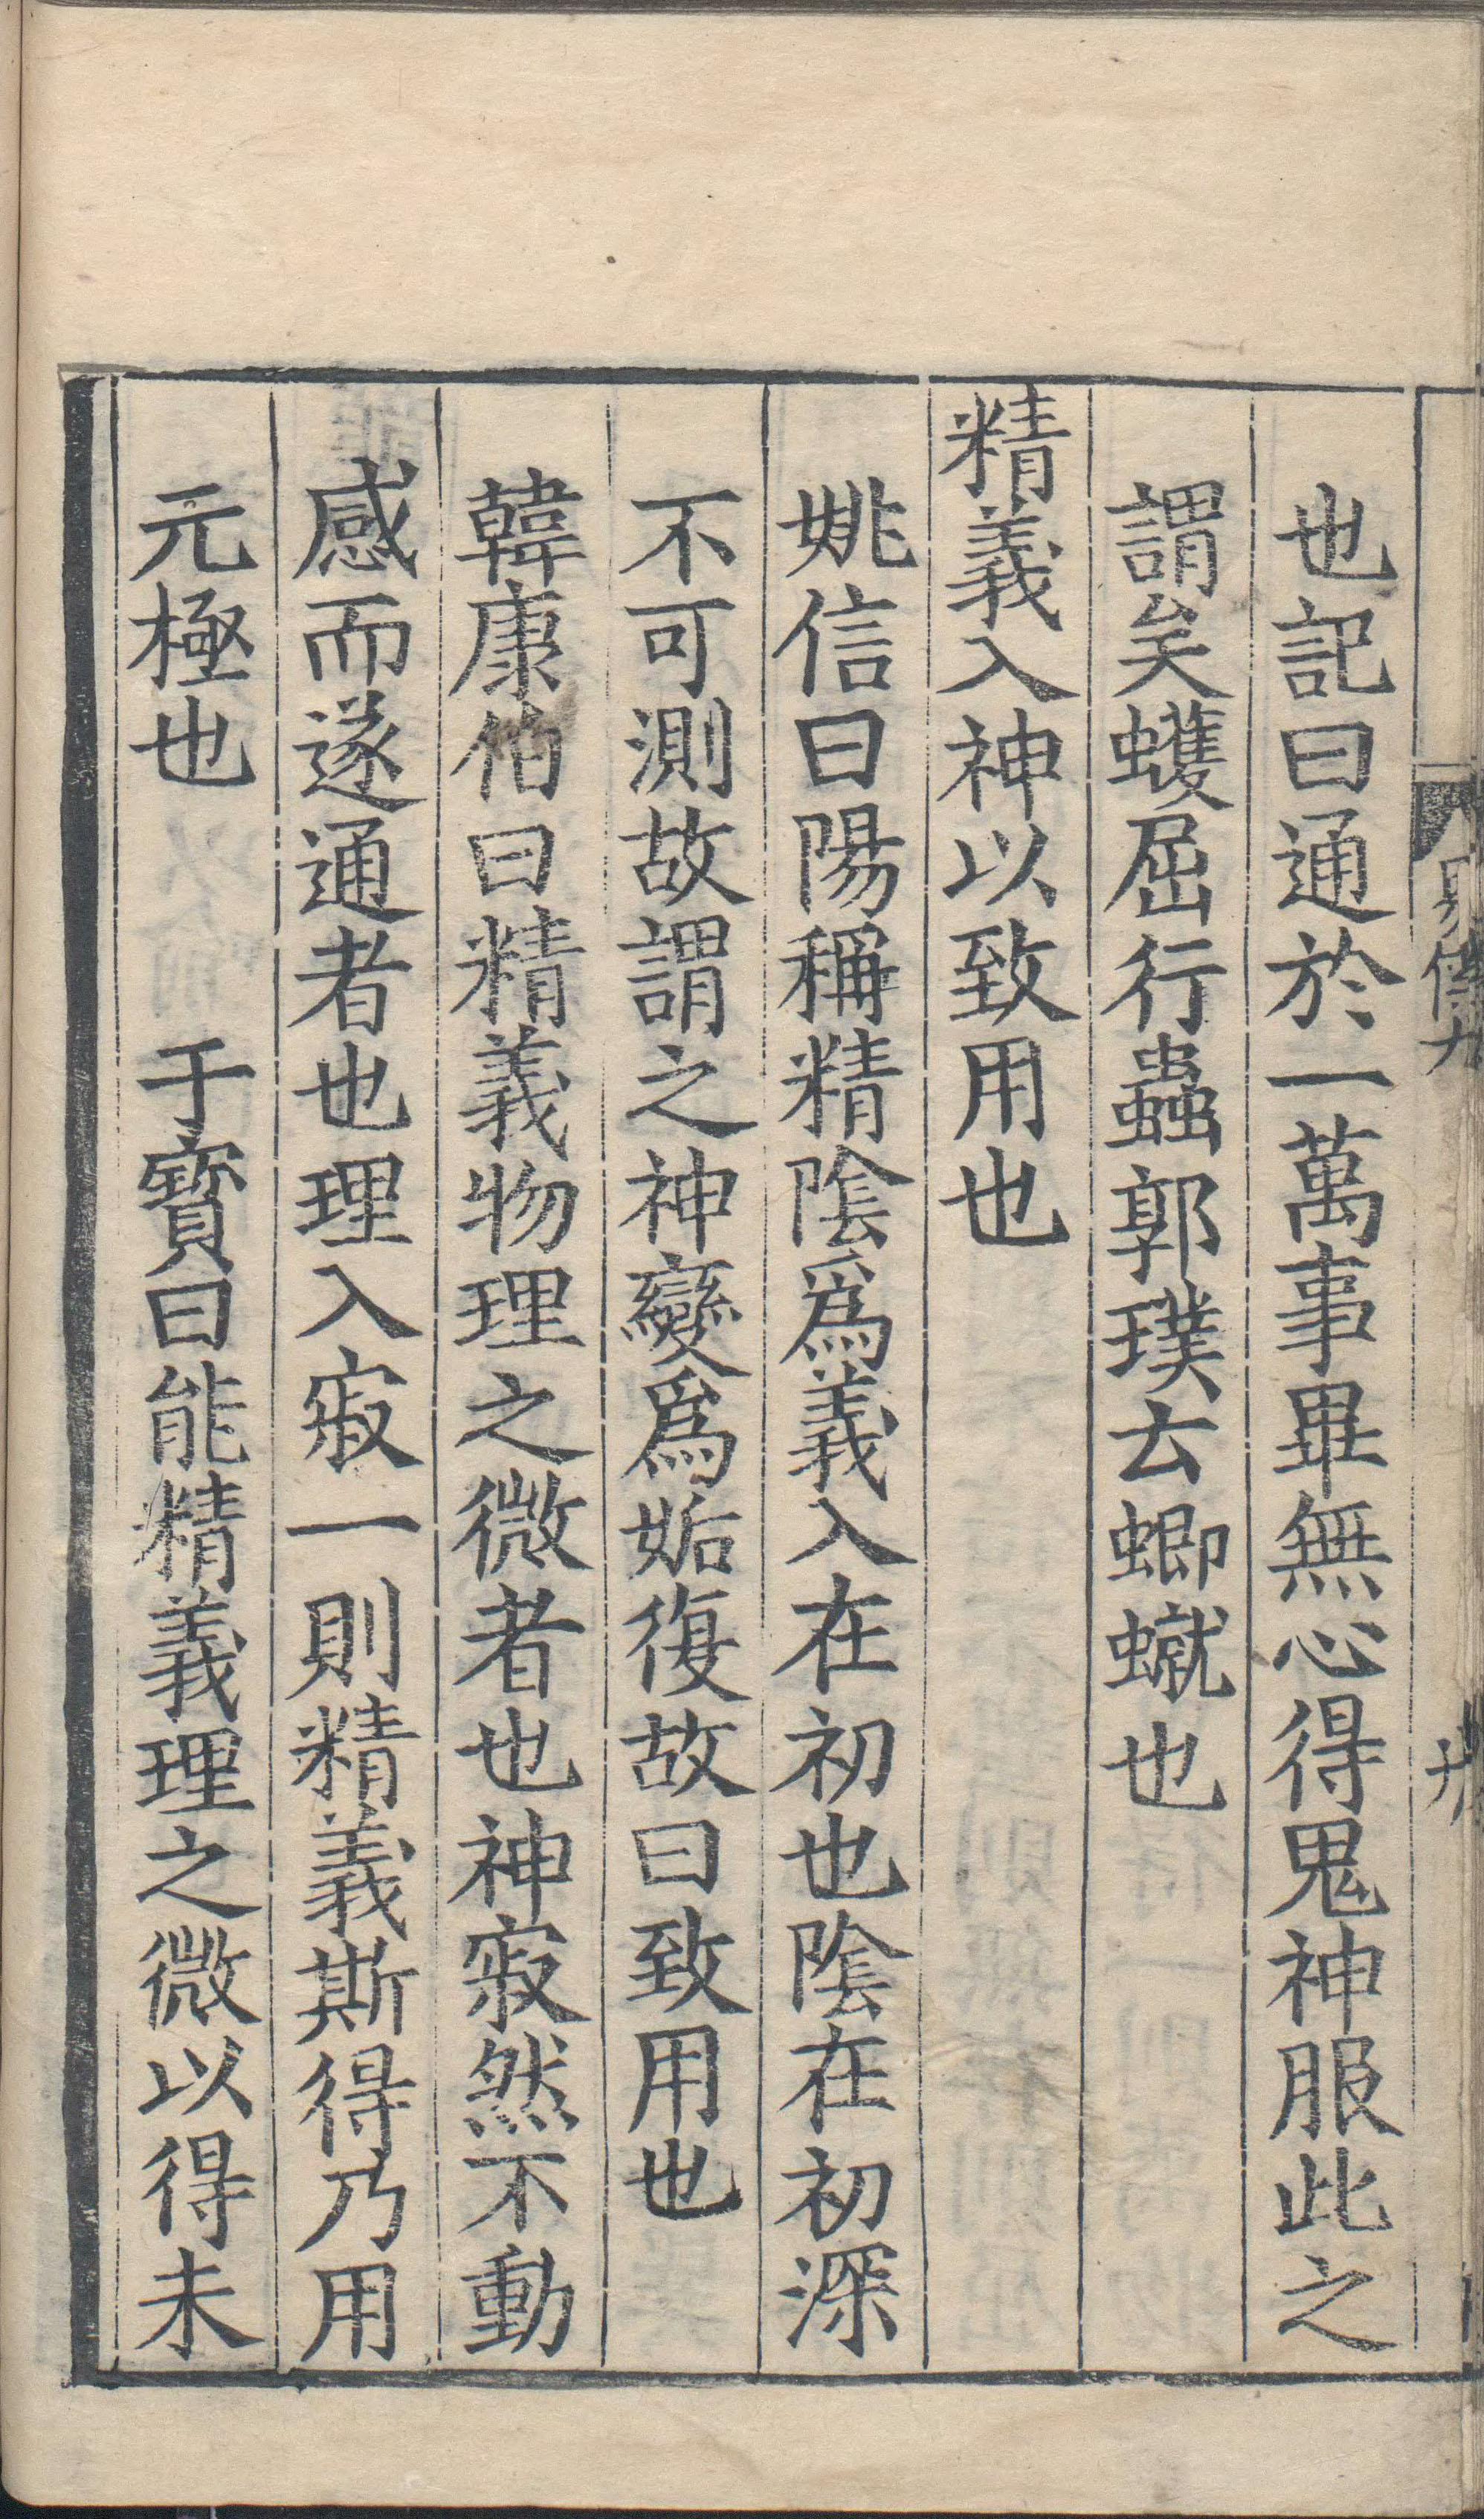 也記曰通於一萬事畢無心得鬼神服此之
謂矣蠖屈行蟲郭璞云蝍䗩也
精義入神以致用也
姚信曰陽稱精陰爲義入在初也陰在初深
不可測故謂之神變爲姤復故曰致用也
韓康伯曰精義物理之微者也神寂然不動
感而遂通者也理入寂一則精義斯得乃用
元極也 于寶曰能精義理之微以得未